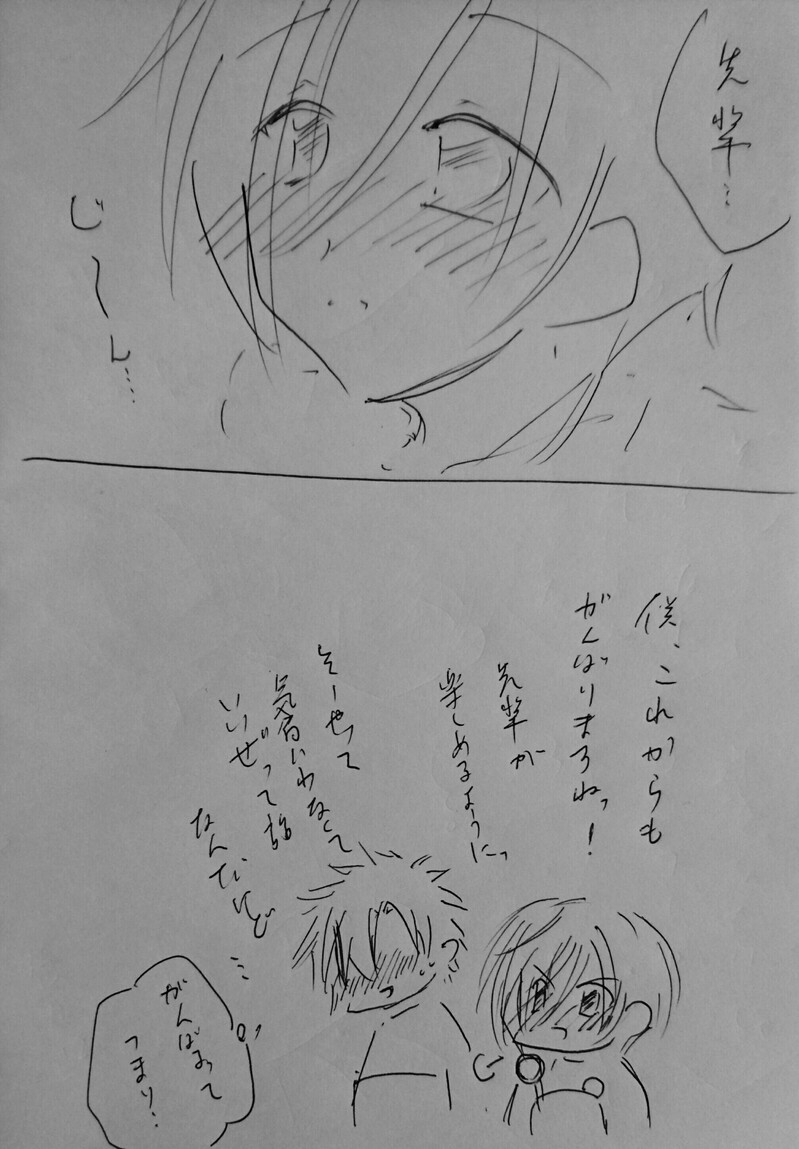 先輩…
じーん……
僕、これからも
がんばりますねっ！
先輩が
楽しめるようにっ
そーやって
気負いわなくて
いいぜって話
なんだけど
…
がんばるって
つまり…